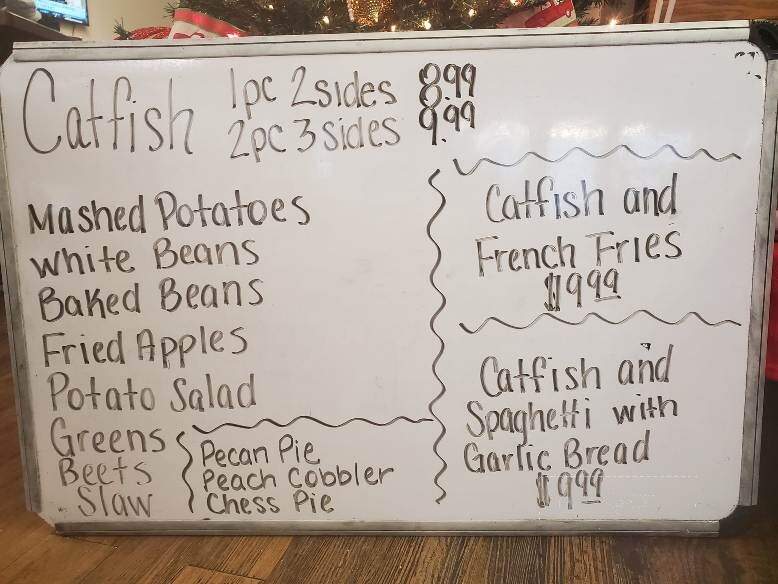 Catfish 1pc 2sides 8.99
2pc 3sides 9.99
Mashed Potatoes
White Beans
Baked Beans
Fried Apples
Potato Salad
Greens
Beets
Slaw
Pecan Pie
Peach Cobbler
Chess Pie
Catfish and
French Fries
$9.99
Catfish and
Spaghetti with
Garlic Bread
$9.99